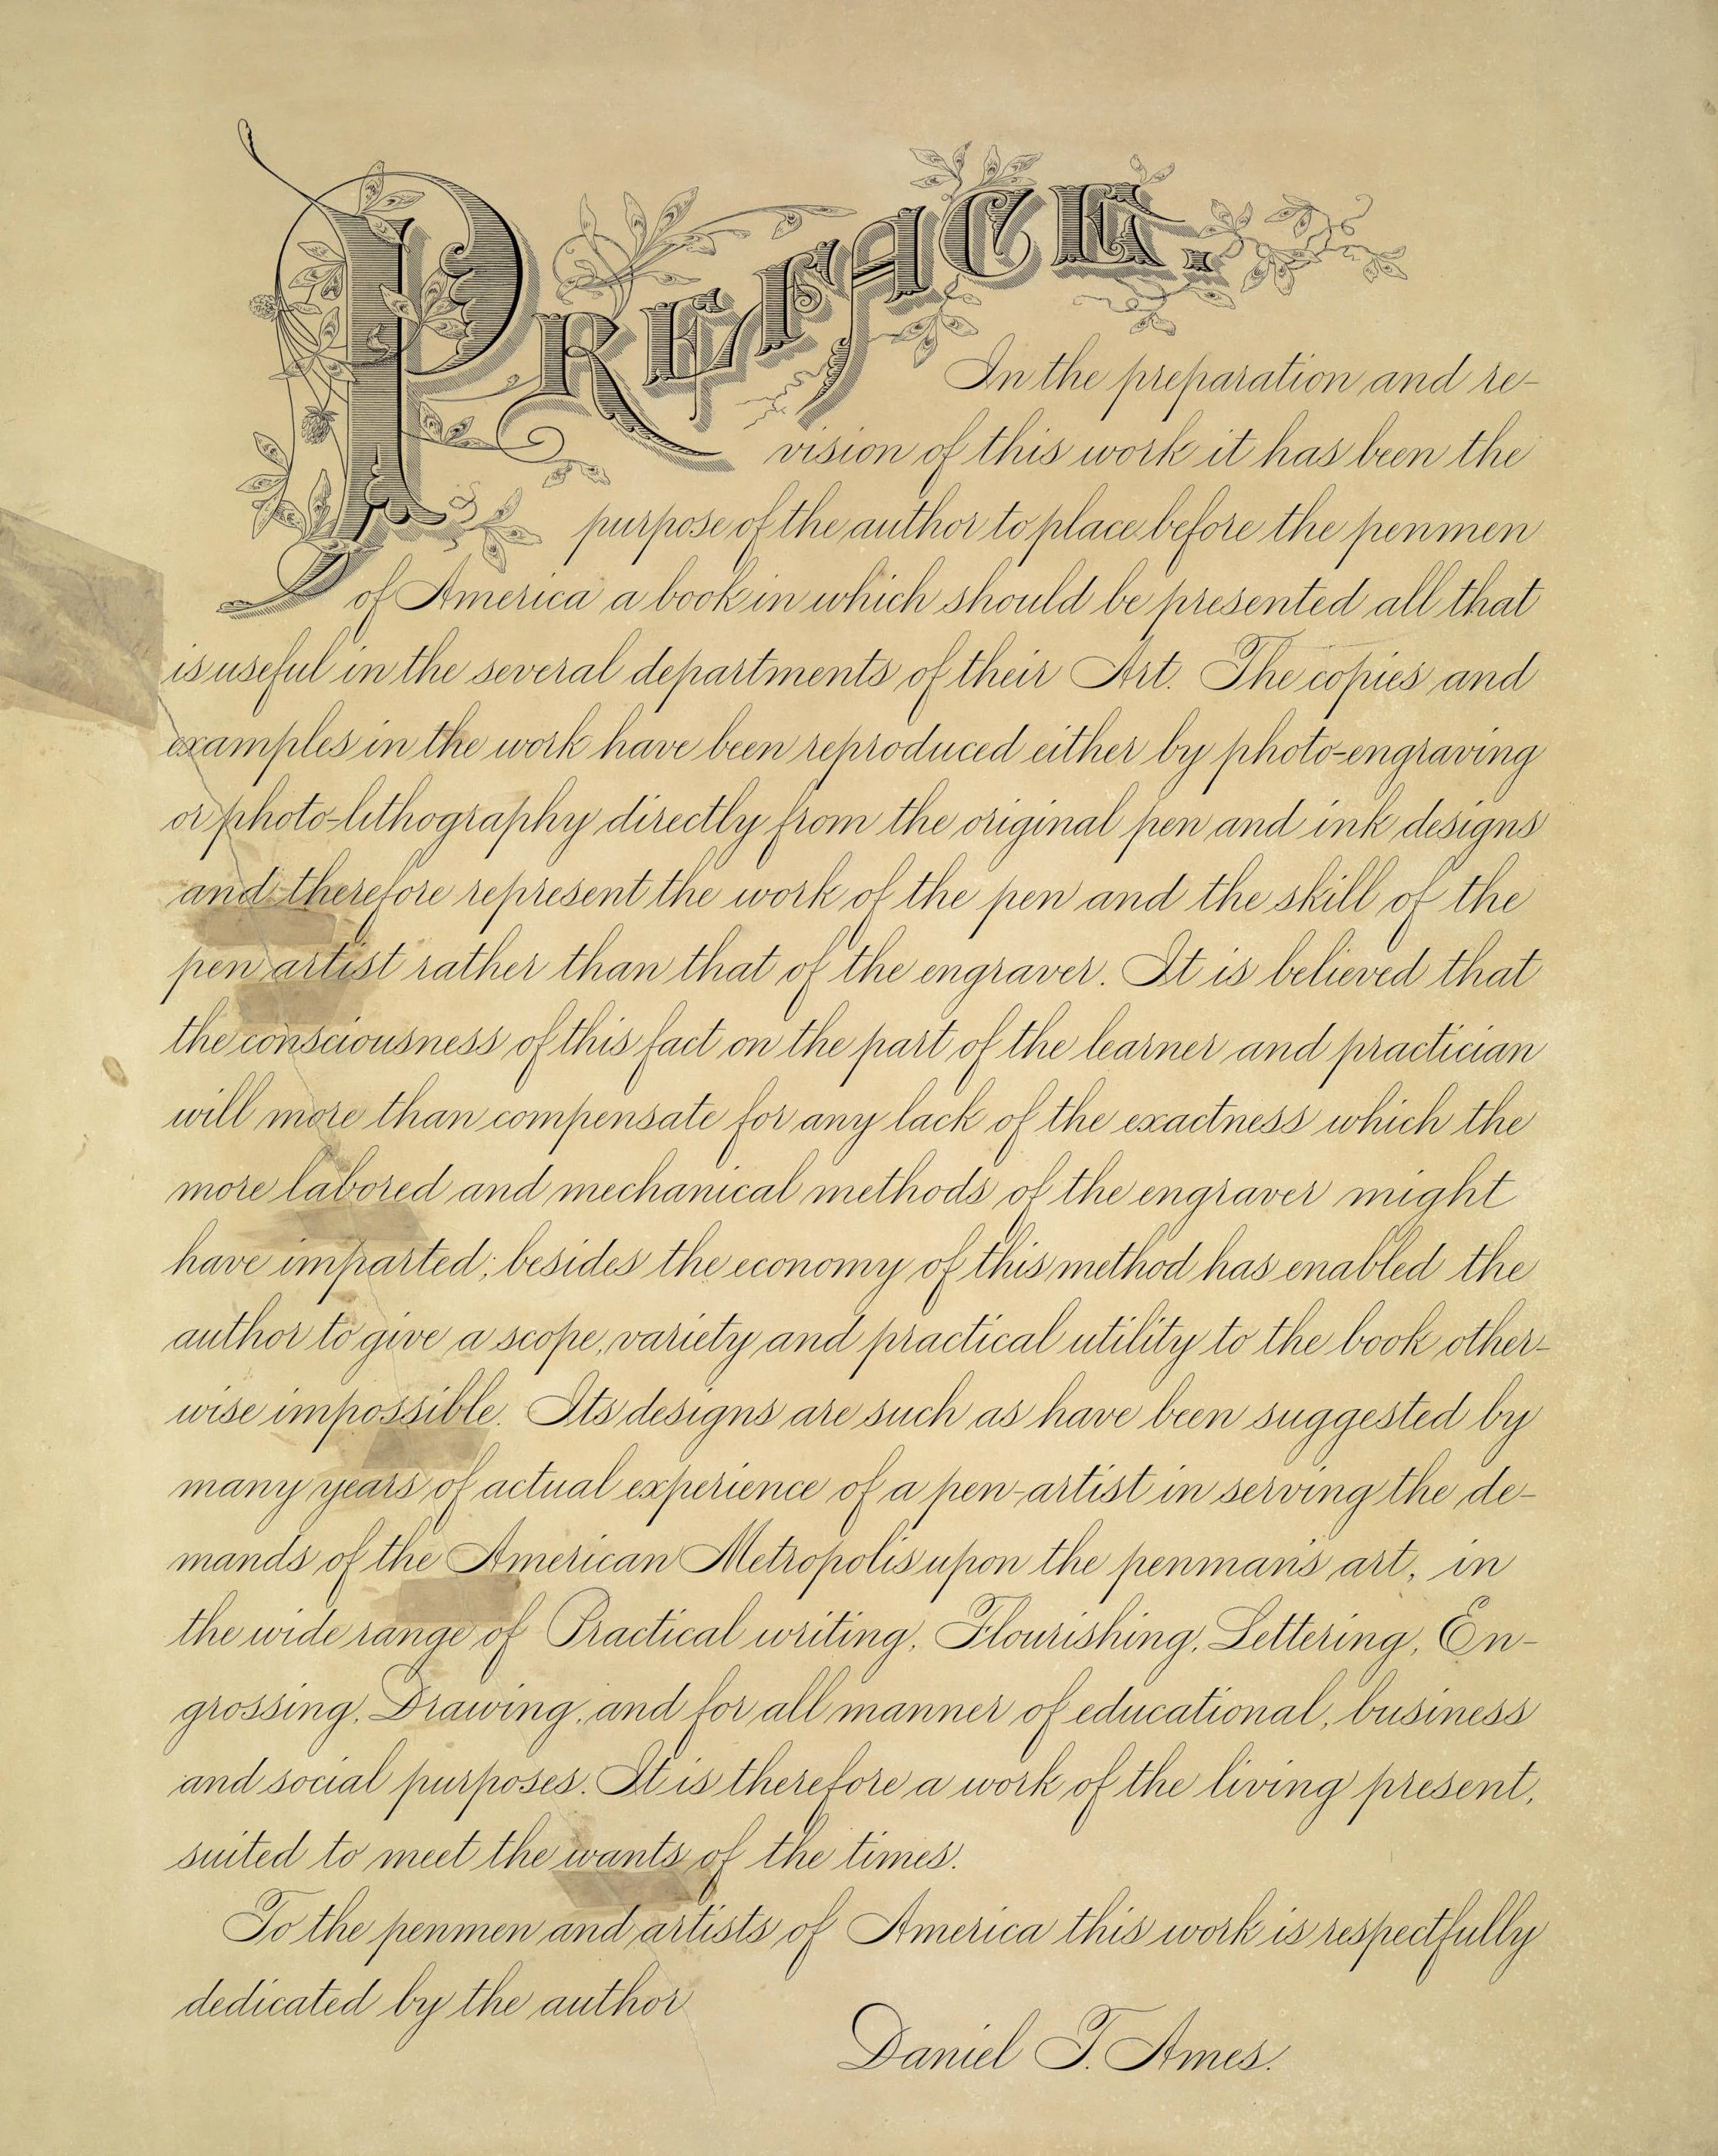 PREFACE.
In the preparation and re-
vision of this work it has been the
purpose of the author to place before the penmen
of America a book in which should be presented all that
is useful in the several departments of their Art. The copies and
examples in the work have been reproduced either by photo-engraving
or photo-lithography directly from the original pen and ink designs
and therefore represent the work of the pen and the skill of the
pen artist rather than that of the engraver. It is believed that
the consciousness of this fact on the part of the learner and practician
will more than compensate for any lack of the exactness which the
more labored and mechanical methods of the engraver might
have imparted; besides the economy of this method has enabled the
author to give a scope, variety and practical utility to the book other-
wise impossible. Its designs are such as have been suggested by
many years of actual experience of a pen-artist in serving the de-
mands of the American Metropolis upon the penman's art, in
the wide range of Practical writing, Flourishing, Lettering, En-
grossing, Drawing, and for all manner of educational, business
and social purposes. It is therefore a work of the living present,
suited to meet the wants of the times.
To the penmen and artists of America this work is respectfully
dedicated by the author
Daniel T. Ames.